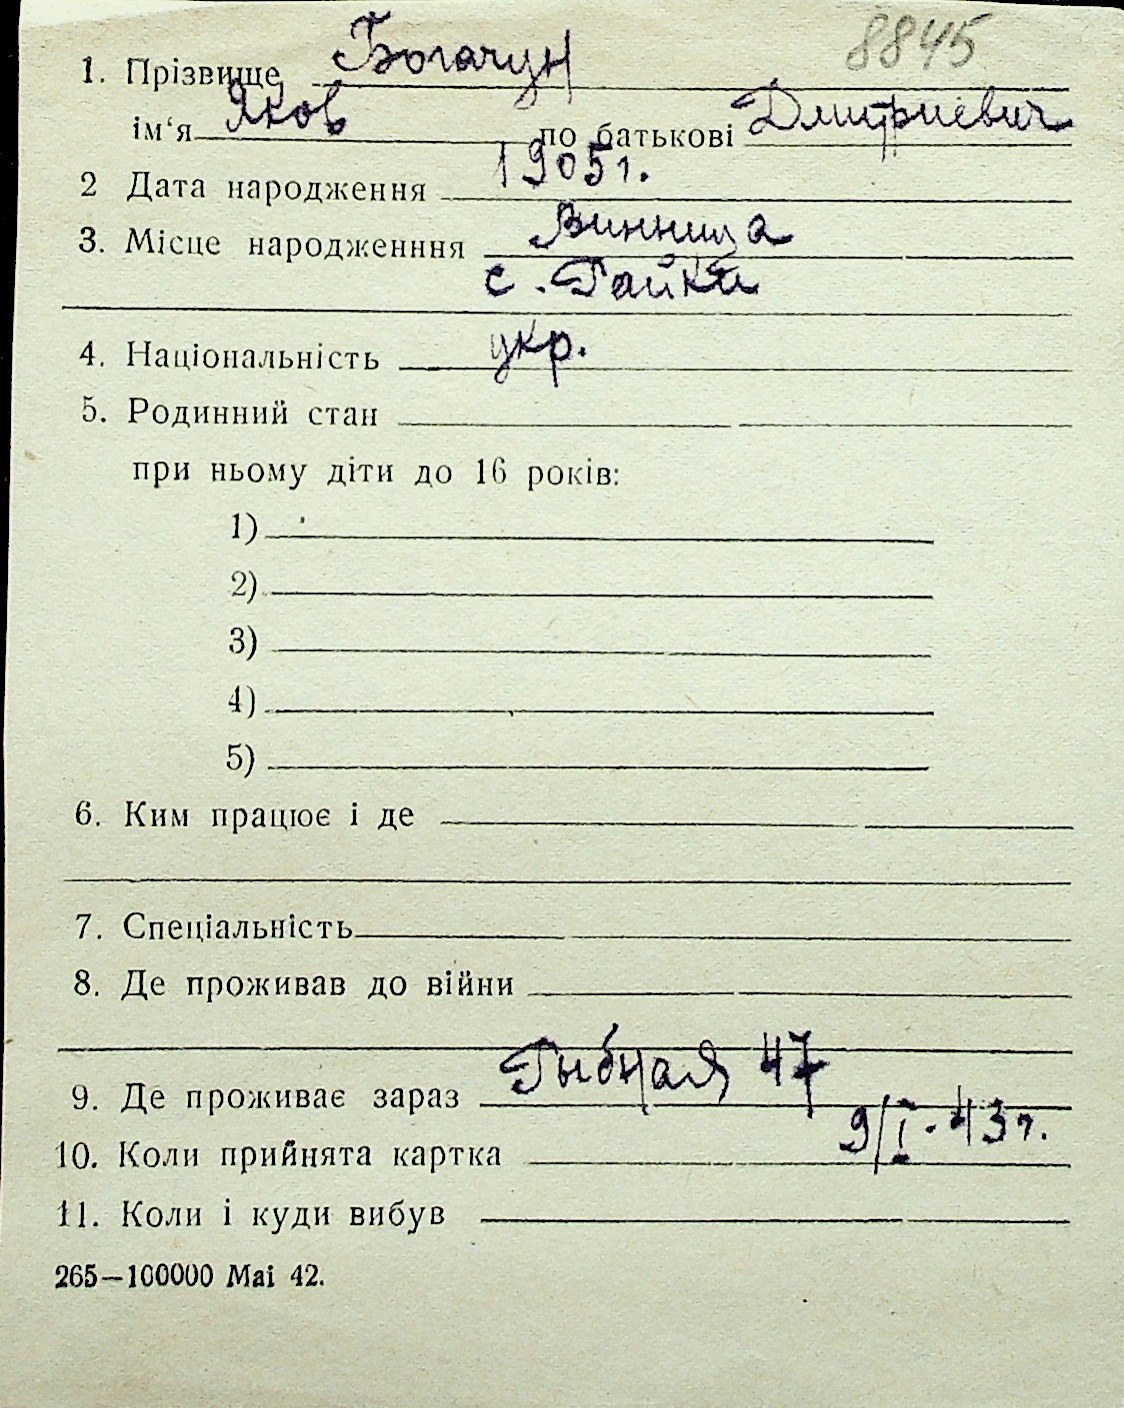 8845
1. Прізвище Богачун
ім‘я Яков по батькові Дмитриевич
2 Дата народження 1905 г.
3. Місце народженння Винница
с. Гайки
4. Національність укр.
5. Родинний стан
при ньому діти до 16 років:
1)
2)
3)
4)
5)
6. Ким працює і де
7. Спеціальність
8. Де проживав до війни
9. Де проживає зараз Рыбная 47
10. Коли прийнята картка 9/I-43 г.
11. Коли і куди вибув
265—100000 Mai 42.